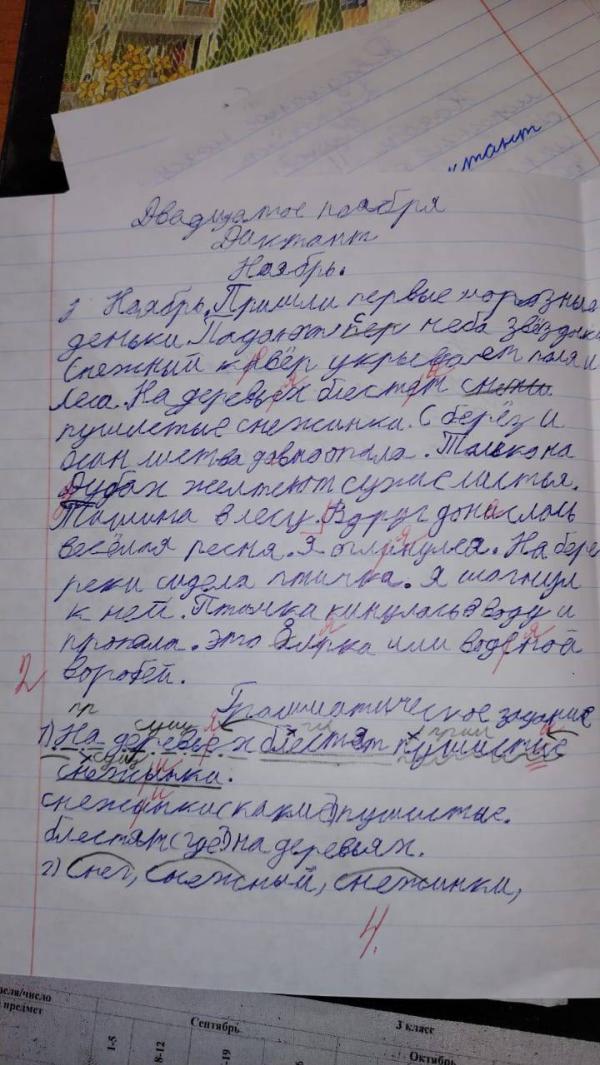 "тант
Двадцатое ноября
Диктант
Ноябрь.
Ноябрь. Пришли первые морозные
деньки. Падают с неба звёздочки
Снежный ковёр укрывает поля и
леса. На деревьех блестят снежи
пушистые снежинка. С берёз и
осин листва давно опала. Только на
Дубах желтеют сухие листья.
Тишина в лесу. Вдруг донислась
весёлая песня. Я оглянулся. На бере
реки сидела птичка. Я шагнул
к ней. Птичка кинулась в воду и
пропала. Это или воденой
воробей.
2
Грамматическое задание
пр сущ гл прил
1) На деревьех блестят пушистые
сущ
снежынка.
снежынки (какие?) пушистые.
блестят (где?) на деревьях.
2) Снег, Снежный, снежинки,
4.
Сентябрь
3 класс
Октябрь
1-5
8-12
-19
еля/число
предмет